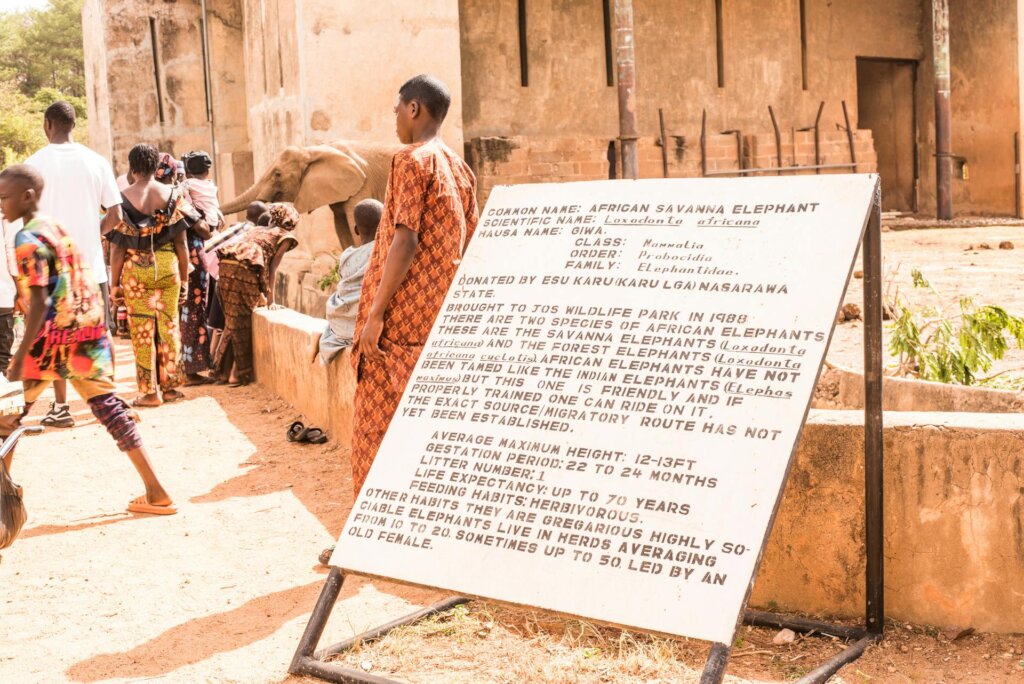 COMMON NAME: AFRICAN SAVANNA ELEPHANT
SCIENTIFIC NAME: Loxadonta africana
HAUSA NAME: GIWA.
CLASS: Mammalia
ORDER: Probocidia
FAMILY: Elephantidae.
DONATED BY ESU KARU (KARU LGA) NASARAWA
STATE.
BROUGHT TO JOS WILDLIFE PARK IN 1988
THERE ARE TWO SPECIES OF AFRICAN ELEPHANTS
THESE ARE THE SAVANNA ELEPHANTS (Loxadonta
africana) AND THE FOREST ELEPHANTS (Loxadonta
africana cyclotis) AFRICAN ELEPHANTS HAVE NOT
BEEN TAMED LIKE THE INDIAN ELEPHANTS (Elephas
maximus) BUT THIS ONE IS FRIENDLY AND IF
PROPERLY TRAINED ONE CAN RIDE ON IT.
THE EXACT SOURCE/MIGRATORY ROUTE HAS NOT
YET BEEN ESTABLISHED.
AVERAGE MAXIMUM HEIGHT: 12-13FT
GESTATION PERIOD: 22 TO 24 MONTHS
LITTER NUMBER: 1
LIFE EXPECTANCY: UP TO 70 YEARS
FEEDING HABITS: HERBIVOROUS.
OTHER HABITS THEY ARE GREGARIOUS HIGHLY SO-
CIABLE ELEPHANTS LIVE IN HERDS AVERAGING
FROM 10 TO 20. SOMETIMES UP TO 50, LED BY AN
OLD FEMALE.